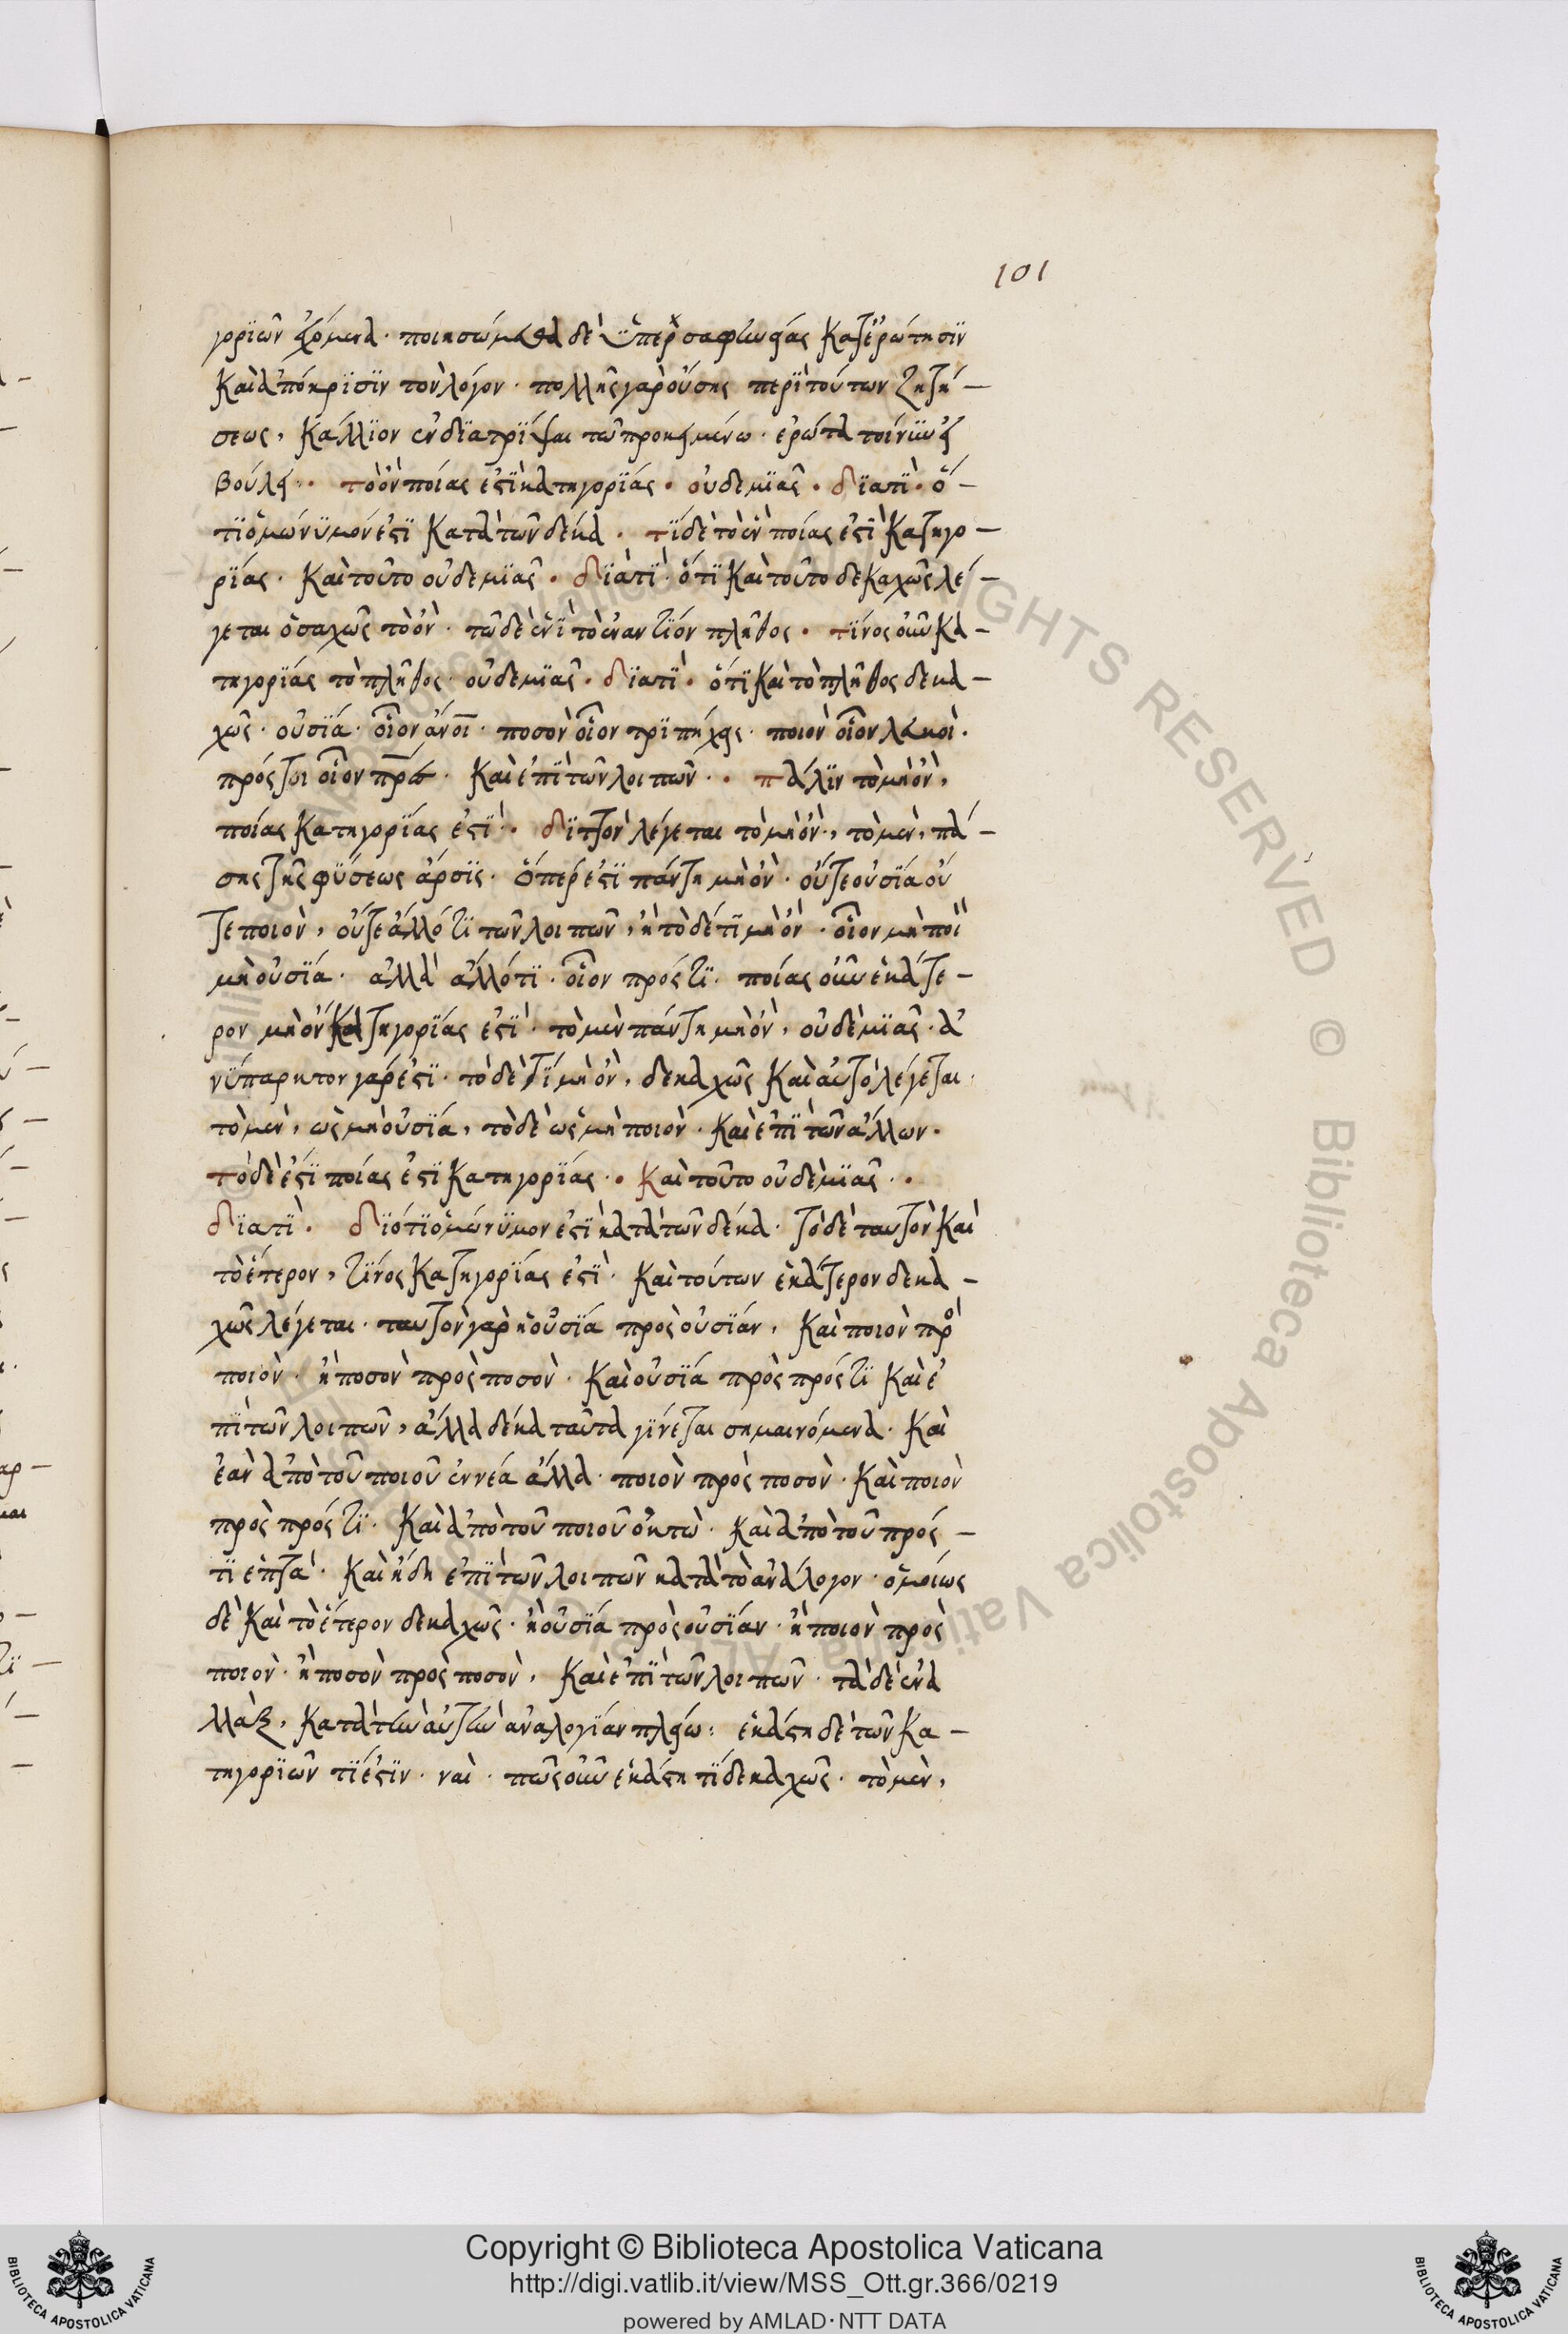 101
γορϊῶν ἐχόμενα. ποιησώμεθα δὲ ὑπὲρ σαφηνείας κατ' ἐρώτησϊν
Καὶ ἀπόκρϊσϊν τον λόγον. πολλῆς γαρ οὔσης περὶ τούτων ζητή –
σεως, Κάλλϊον ἐνδϊατρῖψαι τῶ προκειμένω. ἐρώτα τοίνυν εἰ
βούλει. τὸ ὂν ποίας ἐστὶ κατηγορϊάς. οὐδεμϊᾶς. διατί. ὅ –
τϊ ὁμώνϋμόν ἐστϊ Κατὰ τῶν δέκα. τϊ δὲ τὸ ἓν ποίας ἐστὶ Κατηγο –
ρϊάς. Καὶ τοῦτο οὐδεμϊᾶς. διατί. ὅτϊ Καὶ τοῦτο δεκαχῶς λέ –
γεται ὁσαχῶς τὸ ὂν. τῶ δὲ ἑνὶ τὸ ἐναντίον πλῆθος. τίνος οὖν Κα –
τηγορϊάς τὸ πλῆθος. οὐδεμϊᾶς. διατί. ὅτϊ Καὶ τὸ πλῆθος δεκα –
χῶς. οὐσϊά. οἷον ἄνοι. ποσὸν οἷον τρϊπήχεις. ποιὸν οἷον λευκοὶ.
πρός τι οἷον πρα. Καὶ ἐπὶ τῶν λοιπῶν. πάλϊν τὸ μὴ ὂν,
ποίας Κατηγορϊάς ἐστὶ. διττὸν λέγεται τὸ μὴ ὂν, τὸ μὲν, πά –
σης τῆς φύσεως ἄρσϊς. ὅπερ ἐστϊ πάντη μὴ ὂν. οὔτε οὐσϊά οὔ
τε ποιὸν, οὔτε ἄλλό τϊ τῶν λοιπῶν, ἢ τὸ δέ τϊ μὴ ὂν. οἷον μὴ ποι
μὴ οὐσϊά. ἀλλὰ ἄλλό τϊ. οἷον πρός τϊ. ποίας οὖν ἑκάτε –
ρον μὴ ὂν Κατηγορϊάς ἐστὶ. τὸ μὲν πάντη μὴ ὂν, οὐδὲμϊᾶς. ἀ
νϋπαρκτον γάρ ἐστϊ. τὸ δὲ τὶ μὴ ὂν, δεκαχῶς Καὶ αὐτὸ λέγεται.
τὸ μὲν, ὡς μὴ οὐσϊά, τὸ δὲ ὡς μὴ ποιὸν. Καὶ ἐπὶ τῶν ἄλλων.
τὸ δὲ ἐστὶ ποίας ἐστϊ Κατηγορϊάς. Καὶ τοῦτο οὐδὲμϊᾶς.
διατί. διότϊ ὁμώνϋμον ἐστὶ κατὰ τῶν δέκα. τὸ δὲ ταυτὸν Καὶ
τὸ ἕτερον, τίνος Κατηγορϊάς ἐστὶ. Καὶ τούτων ἑκάτερον δεκα –
χῶς λέγεται. ταυτὸν γαρ ἢ οὐσϊά προς οὐσϊάν, Καὶ ποιὸν πρὸ
ποιὸν. ἢ ποσὸν πρὸς ποσὸν. Καὶ οὐσϊά πρὸς πρός τϊ Καὶ ἐ
πὶ τῶν λοιπῶν, ἄλλα δέκα ταῦτα γϊνέται σημαινόμενα. Καὶ
ἐὰν ἀπὸ τοῦ ποιοῦ ἐννέα ἄλλα. ποιὸν πρὸς ποσὸν. Καὶ ποιὸν
πρὸς πρός τϊ. Καὶ ἀπὸ τοῦ ποιοῦ ὀκτὼ. Καὶ ἀπὸ τοῦ πρός –
τϊ ἑπτὰ. Καὶ ἤδη ἐπὶ τῶν λοιπῶν κατὰ τὸ ἀνάλογον. ὁμοίως
δὲ Καὶ τὸ ἕτερον δεκαχῶς. ἢ οὐσϊά πρὸς οὐσϊάν. ἢ ποιὸν πρὸς
ποιὸν. ἢ ποσὸν πρὸς ποσὸν, Καὶ ἐπὶ τῶν λοιπῶν. τὰ δὲ ἐνα
λλὰξ, Κατὰ τὴν αὐτὴν ἀναλογϊάν πλείω: ἑκάστη δὲ τῶν Κα –
τηγορϊῶν τϊ ἐστϊν. ναὶ. πῶς οὖν ἑκάστη τϊ δεκαχῶς. τὸ μὲν,
Copyright © Biblioteca Apostolica Vaticana
http://digi.vatlib.it/view/MSS_Ott.gr.366/0219
powered by AMLAD·NTT DATA